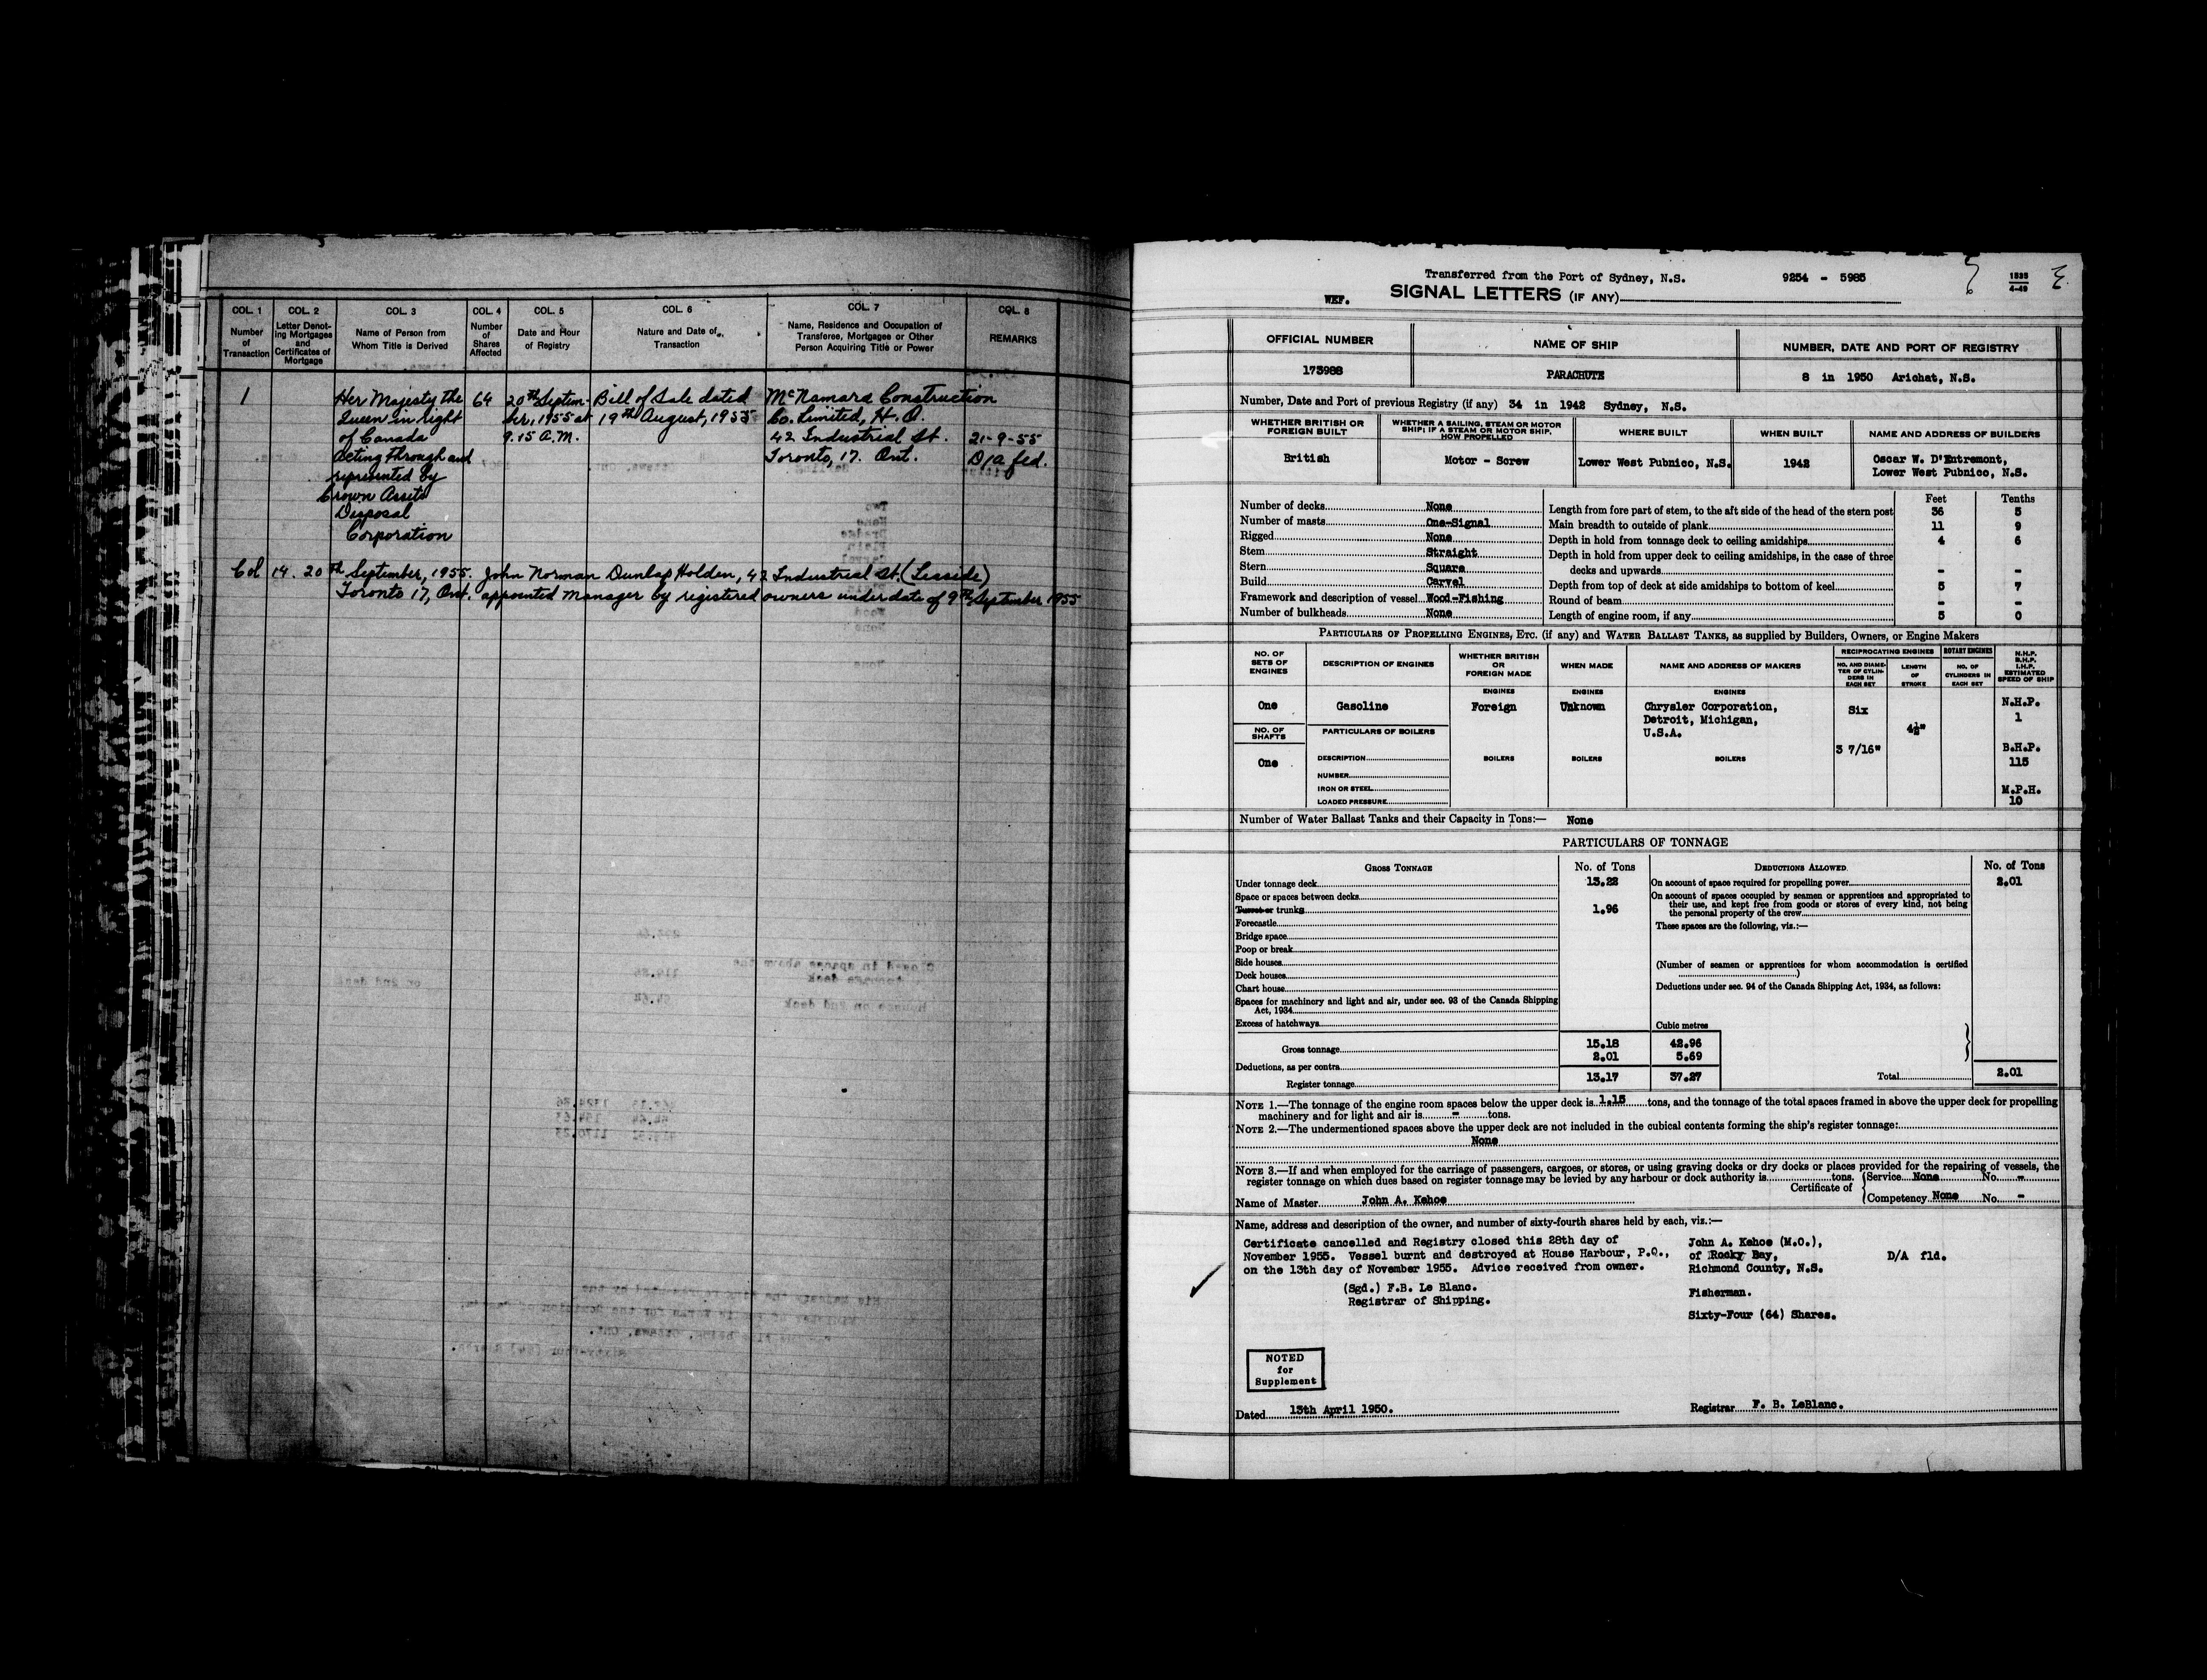 COL. 1 COL. 2 COL. 3 COL. 4 COL. 5 COL. 6 COL. 7 COL. 8
Number of Transaction
Letter Denoting Mortgages and Certificates of Mortgage
Name of Person from Whom Title is Derived
Number of Shares Affected
Date and Hour of Registry
Nature and Date of Transaction
Name, Residence and Occupation of Transferee, Mortgagee or Other Person Acquiring Title or Power
REMARKS
1 Her Majesty the 64 20th Septem- Bill of Sale dated McNamara Construction
Queen in right ber, 1955 at 19th August, 1955 Co. Limited, H. O.
of Canada 9.15 A.M. 42 Industrial St. 21-9-55
acting through and Toronto, 17. Ont. D/a fld.
represented by
Crown Assets
Disposal
Corporation
Col 14. 20th September, 1955. John Norman Dunlap Holden, 42 Industrial St. (Leaside)
Toronto 17, Ont. appointed manager by registered owners under date of 9th September 1955
Transferred from the Port of Sydney, N.S. 9254 - 5985
1535
4-49
WEF. SIGNAL LETTERS (IF ANY)
OFFICIAL NUMBER NAME OF SHIP NUMBER, DATE AND PORT OF REGISTRY
173988 PARACHUTE 8 in 1950 Arichat, N.S.
Number, Date and Port of previous Registry (if any) 34 in 1942 Sydney, N.S.
WHETHER BRITISH OR FOREIGN BUILT
WHETHER A SAILING, STEAM OR MOTOR SHIP; IF A STEAM OR MOTOR SHIP, HOW PROPELLED
WHERE BUILT WHEN BUILT NAME AND ADDRESS OF BUILDERS
British Motor - Screw Lower West Pubnico, N.S. 1942 Oscar W. D'Entremont,
Lower West Pubnico, N.S.
Feet Tenths
Number of decks None Length from fore part of stem, to the aft side of the head of the stern post 36 5
Number of masts One-Signal Main breadth to outside of plank 11 9
Rigged None Depth in hold from tonnage deck to ceiling amidships 4 6
Stem Straight Depth in hold from upper deck to ceiling amidships, in the case of three
Stern Square decks and upwards - -
Build Carvel Depth from top of deck at side amidships to bottom of keel 5 7
Framework and description of vessel Wood-Fishing Round of beam - -
Number of bulkheads None Length of engine room, if any 5 0
PARTICULARS OF PROPELLING ENGINES, ETC. (if any) and WATER BALLAST TANKS, as supplied by Builders, Owners, or Engine Makers
NO. OF SETS OF ENGINES
DESCRIPTION OF ENGINES
WHETHER BRITISH OR FOREIGN MADE
WHEN MADE
NAME AND ADDRESS OF MAKERS
RECIPROCATING ENGINES ROTARY ENGINES
NO. AND DIAMETER OF CYLINDERS IN EACH SET
LENGTH OF STROKE
NO. OF CYLINDERS IN EACH SET
N.H.P. B.H.P. I.H.P. ESTIMATED SPEED OF SHIP
ENGINES ENGINES ENGINES
One Gasoline Foreign Unknown Chrysler Corporation, Six N.H.P.
Detroit, Michigan, 1
U.S.A. 4½"
NO. OF SHAFTS PARTICULARS OF BOILERS
3 7/16" B.H.P.
One DESCRIPTION BOILERS BOILERS BOILERS 115
NUMBER
IRON OR STEEL M.P.H.
LOADED PRESSURE 10
Number of Water Ballast Tanks and their Capacity in Tons:— None
PARTICULARS OF TONNAGE
GROSS TONNAGE No. of Tons DEDUCTIONS ALLOWED No. of Tons
Under tonnage deck 13.22 On account of space required for propelling power 2.01
Space or spaces between decks On account of spaces occupied by seamen or apprentices and appropriated to
Turret or trunks 1.96 their use, and kept free from goods or stores of every kind, not being
Forecastle the personal property of the crew
Bridge space These spaces are the following, viz.:—
Poop or break
Side houses (Number of seamen or apprentices for whom accommodation is certified
Deck houses )
Chart house Deductions under sec. 94 of the Canada Shipping Act, 1934, as follows:
Spaces for machinery and light and air, under sec. 93 of the Canada Shipping
Act, 1934
Excess of hatchways Cubic metres
Gross tonnage 15.18 42.96
Deductions, as per contra 2.01 5.69
Register tonnage 13.17 37.27 Total 2.01
NOTE 1.—The tonnage of the engine room spaces below the upper deck is 1.15 tons, and the tonnage of the total spaces framed in above the upper deck for propelling
machinery and for light and air is - tons.
NOTE 2.—The undermentioned spaces above the upper deck are not included in the cubical contents forming the ship's register tonnage:
None
NOTE 3.—If and when employed for the carriage of passengers, cargoes, or stores, or using graving docks or dry docks or places provided for the repairing of vessels, the
register tonnage on which dues based on register tonnage may be levied by any harbour or dock authority is tons.
Certificate of Service None No. -
Competency None No. -
Name of Master John A. Kehoe
Name, address and description of the owner, and number of sixty-fourth shares held by each, viz.:—
Certificate cancelled and Registry closed this 28th day of
November 1955. Vessel burnt and destroyed at House Harbour, P.Q.,
on the 13th day of November 1955. Advice received from owner.
(Sgd.) F.B. Le Blanc.
Registrar of Shipping.
John A. Kehoe (M.O.),
of Rocky Bay, D/A fld.
Richmond County, N.S.
Fisherman.
Sixty-Four (64) Shares.
NOTED
for
Supplement
Dated 13th April 1950. Registrar F. B. LeBlanc.